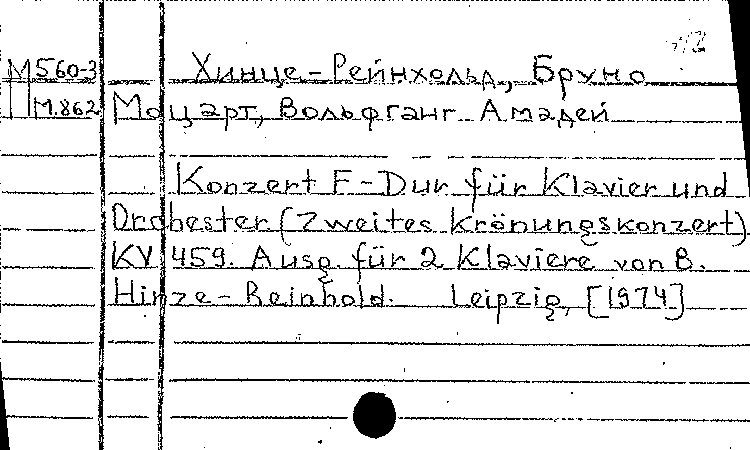 М560-3 Хинце-Рейнхольд, Бруно
М.862 Моцарт, Вольфганг Амадей
Konzert F-Dur für Klavier und
Orchester (Zweites Krönungskonzert)
KV 459. Ausg. für 2 Klaviere von B.
Hinze-Reinhold. Leipzig, [1974]